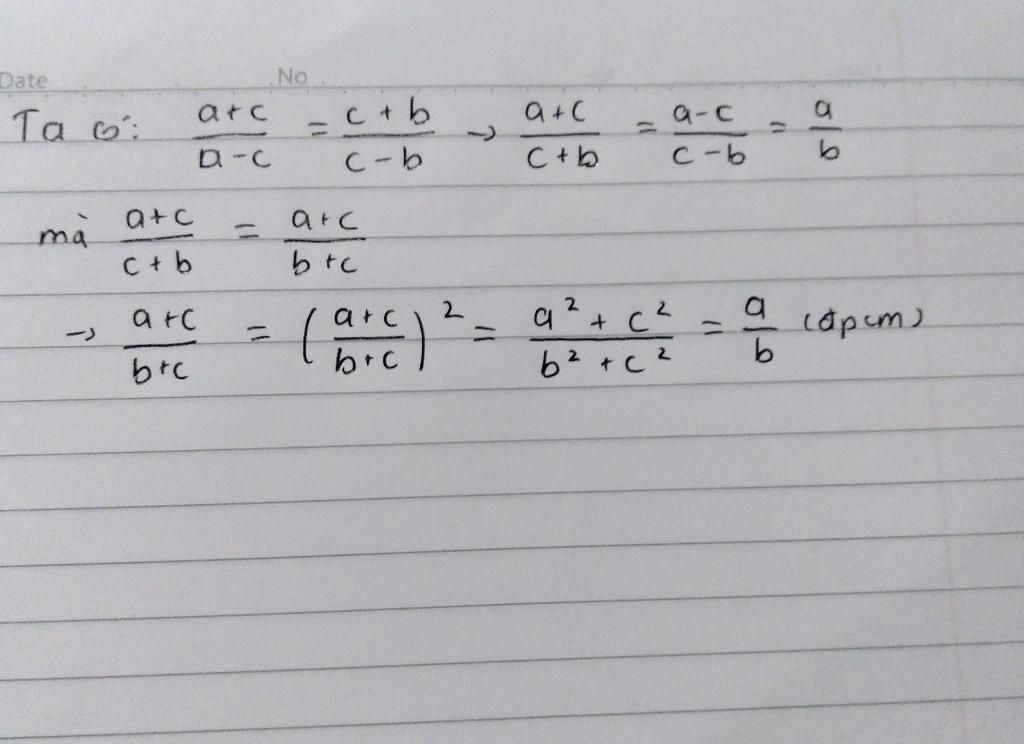 Date No
Ta có: a+c/a-c = c+b/c-b → a+c/c+b = a-c/c-b = a/b
mà a+c/c+b = a+c/b+c
→ a+c/b+c = (a+c/b+c)² = a²+c²/b²+c² = a/b (đpcm)